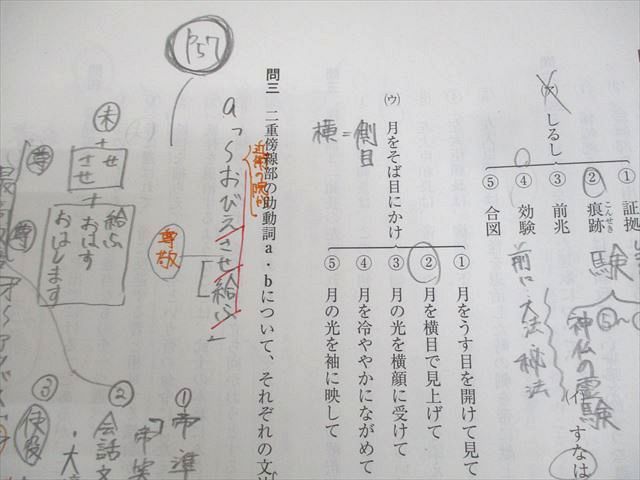 しるし
① 証拠
② 痕跡
こんせき
③ 前兆
④ 効験
⑤ 合図
験
神仏の霊験
すなは
前に大法・秘法
(ウ) 月をそば目にかけ
横=側目
① 月をうす目を開けて見て
② 月を横目で見上げて
③ 月の光を横顔に受けて
④ 月を冷ややかにながめて
⑤ 月の光を袖に映して
問三 二重傍線部の助動詞a・bについて、それぞれの文
P57
a「〜おびえさせ給ふ」
尊敬
未
+
せ
させ
+
給ふ
おはす
おはします
尊
尊
①
②
会話文
③
使役